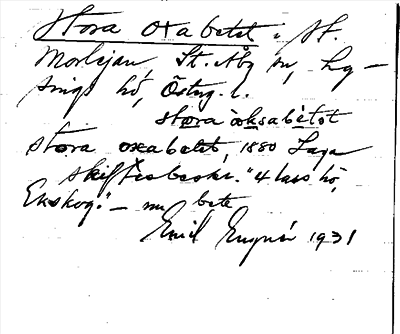 Stora oxabetet i St.
Morlejan, St. Åby sn, Ly-
sings hd, Östug. l.
stora àksabètet
stora oxabetet, 1880 Laga
skiftesbeskr. "4 lass hö,
Ekskog." – nu bete
Emil 1931